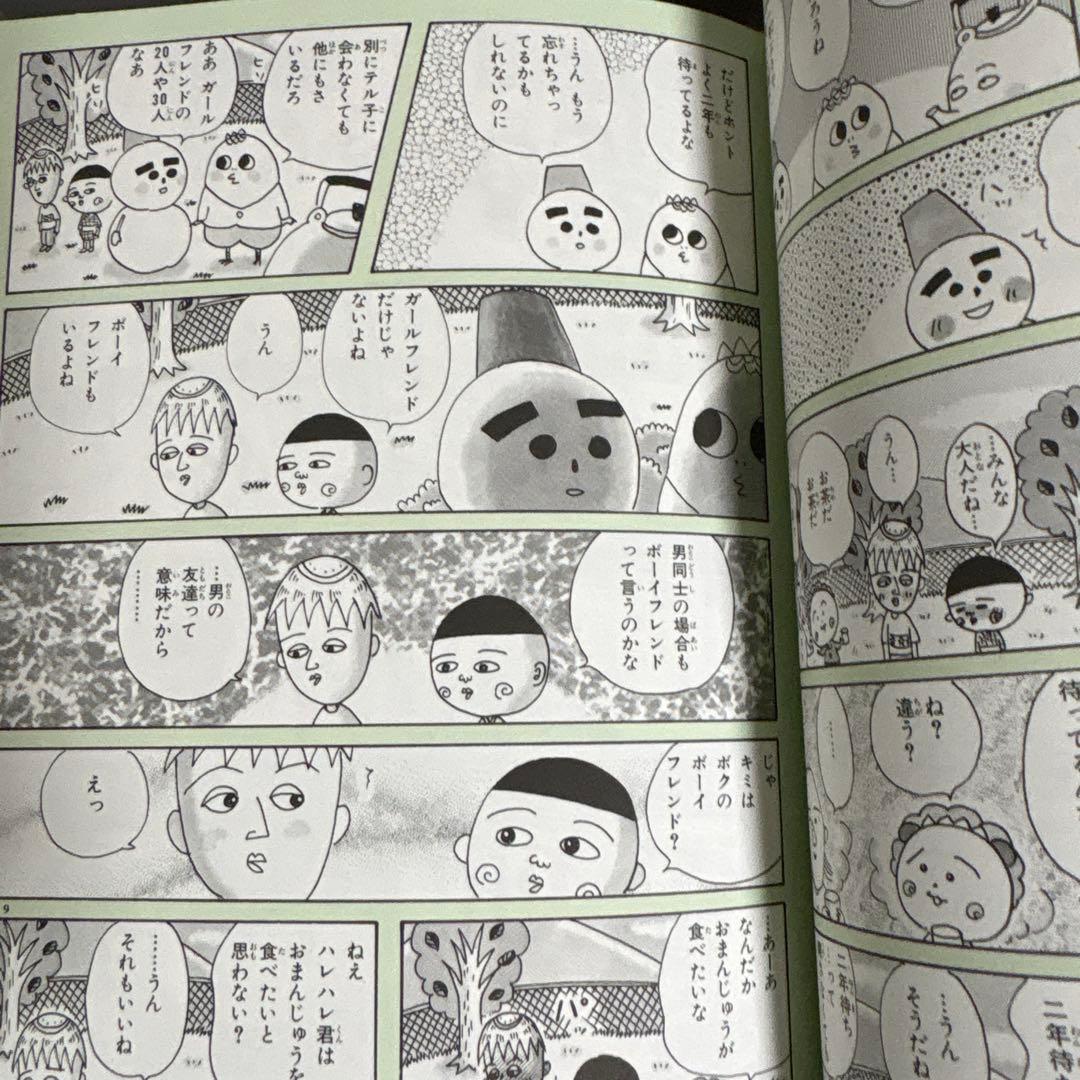 ろうね
…みんな
大人だね…
うん…
お茶だ
お茶だ
ね？
違う？
……
二年待
…うん
そうだね
二年待ち
って
だけどホント
よく二年も
待ってるよな
…うん もう
忘れちゃっ
てるかも
しれないのに
別にテル子に
会わなくても
他にもさ
いるだろ
ヒソ
ヒソ
ああ ガール
フレンドの
20人や30人
なあ
ガールフレンド
だけじゃ
ないよね
うん
ボーイ
フレンドも
いるよね
男同士の場合も
ボーイフレンド
って言うのかな
……男の
友達って
意味だから
………
じゃ
キミは
ボクの
ボーイ
フレンド？
えっ
…あーあ
なんだか
おまんじゅうが
食べたいな
パ
ねえ
ハレハレ君は
おまんじゅうを
食べたいと
思わない？
……うん
それもいいね
9